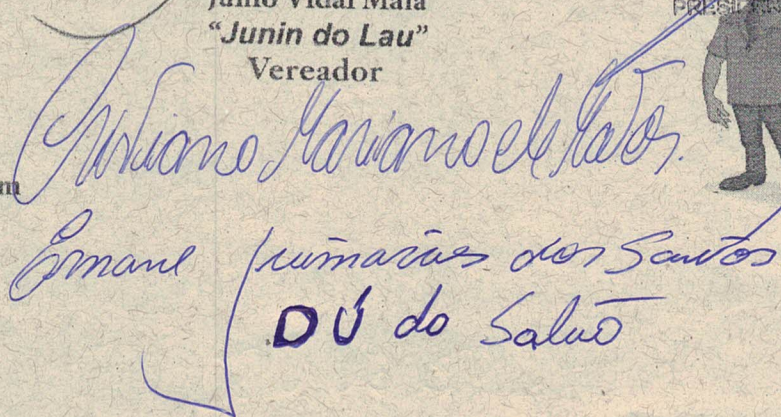 Júnio Vidal Maia
"Junin do Lau"
Vereador
Cristiano Mariano de Matos.
m
Ernane Guimarães dos Santos
DÚ do Salão